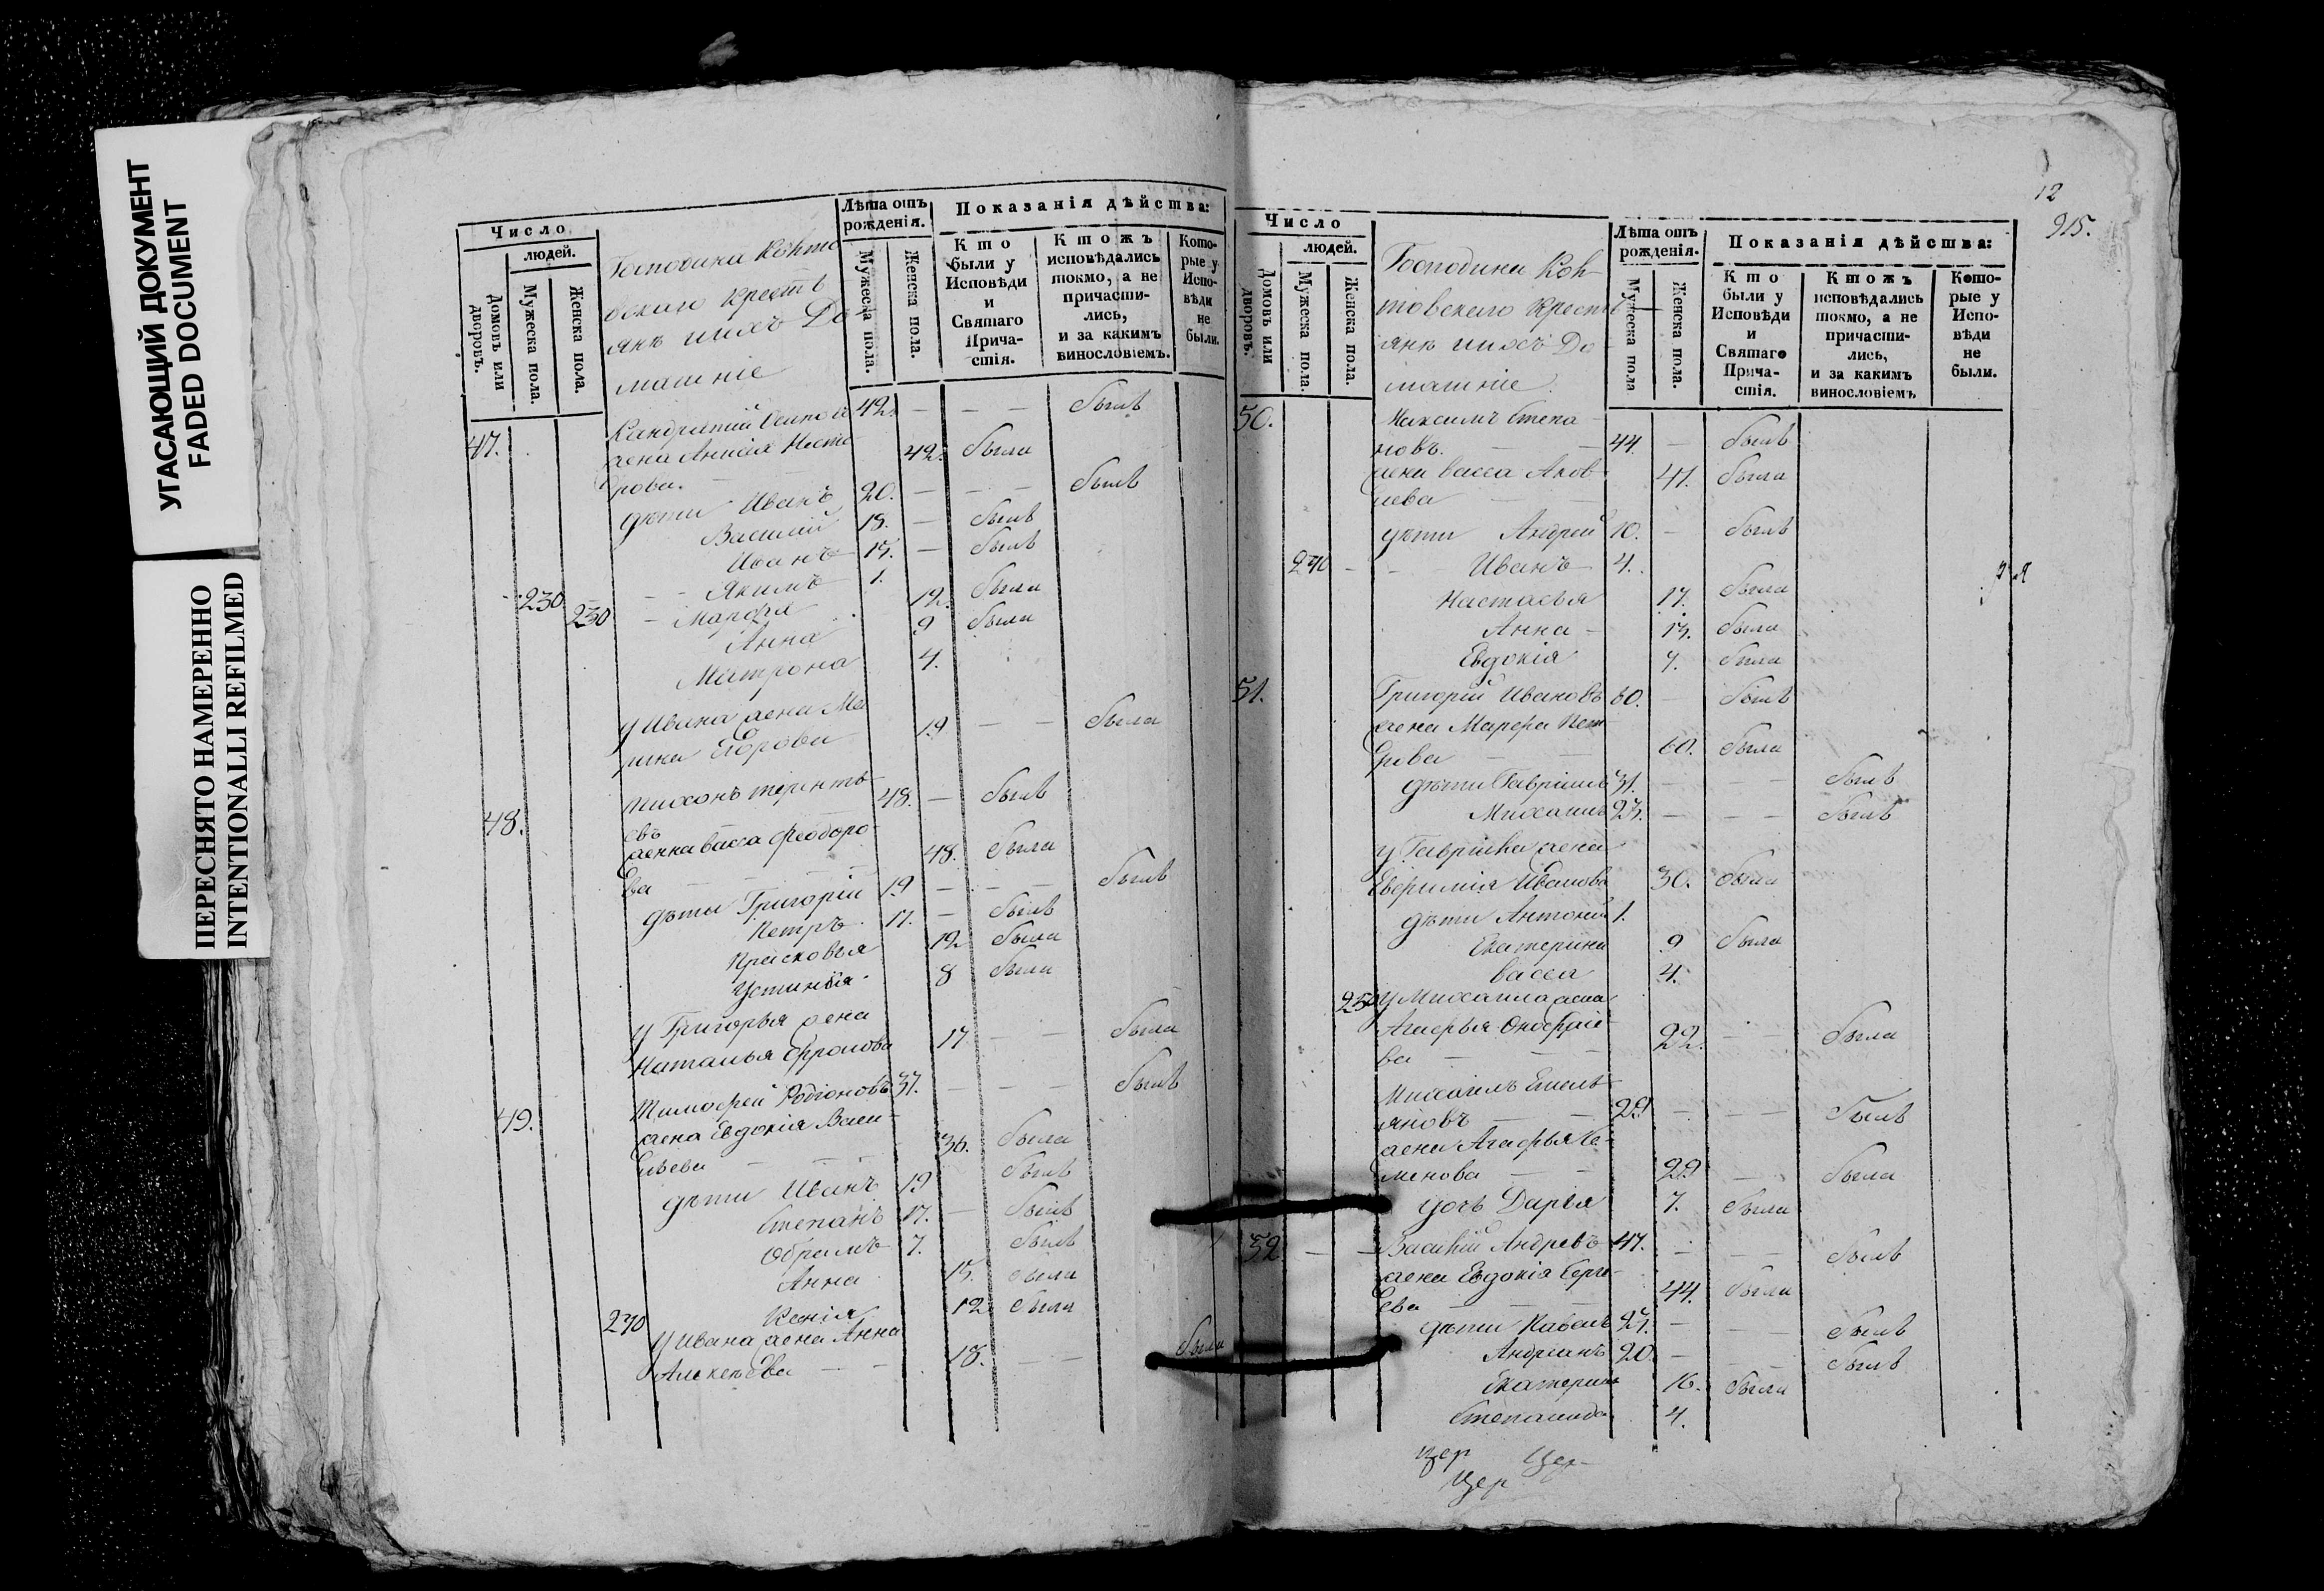 УГАСАЮЩИЙ ДОКУМЕНТ
FADED DOCUMENT
ПЕРЕСНЯТО НАМЕРЕННО
INTENTIONALLI REFILMED
Число
людей.
Домовъ или дворовъ.
Мужеска пола.
Женска пола.
Лѣта отъ рожденія.
Мужеска пола.
Женска пола.
Показанія дѣйства:
Кто были у Исповѣди и Святаго Причастія.
Ктожъ исповѣдались токмо, а не причастились, и за какимъ винословіемъ.
Которые у Исповѣди не были.
Господина Конто
вскаго крестъ
янъ ихъ До
машніе
47. Кандратий Осипов 42. — — — былъ
жена Анисия Несте
рова. 42. была
дѣти Иванъ 20. — — — былъ
Василий 18. — былъ
Иванъ 15. — былъ
230 Якимъ 1.
230 Марфа 12. была
Анна 9 была
Матрона 4.
у Ивана жена Ма
рина Егорова 19 — — была
48. Тихонъ терентъ
евъ 48. — былъ
жена васа Феодоро
ва 48. была
дѣти Григорій 19 — — — былъ
Петръ 17. — былъ
Прасковья 12 была
Устинія 8 была
у Григорья жена
Наталья Ефрѣмова 17 — — была
49. Тимофей Родіоновъ 37. — — — былъ
жена Евдокія Васи
льева 36. была
дѣти Иванъ 19 былъ
Степанъ 17. — былъ
Обрамъ 7. былъ
Анна 15. была
240 Ксенія 12 была
у Ивана жена Анна
Алексѣева — — 18. — — была
12
915.
Число
людей.
Домовъ или дворовъ.
Мужеска пола.
Женска пола.
Лѣта отъ рожденія.
Мужеска пола
Женска пола.
Показанія дѣйства:
Кто были у Исповѣди и Святаго Причастія.
Ктожъ исповѣдались токмо, а не причастились, и за какимъ винословіемъ
Которые у Исповѣди не были.
Господина Кон
товскаго крестъ
янъ ихъ До
машніе
50. Максимъ Степа
новъ. — — 44. — былъ
жена васса Яков
лева 41. была
дѣти Андрей 10. — былъ
240 — — Иванъ 4.
Настасья 17. была
Анна — 13. была
Евдокія 7. была
51. Григорій Ивановъ 60. — былъ
жена Марфа Пет
рова 60. была
дѣти Гавріилъ 31. — — — былъ
Михаилъ 23. — — — былъ
у Гавріила жена
Евфимія Иванова 30. была
дѣти Антоній 1.
Екатерина 9 была
васса 4.
250 у Михаила жена
Агафья
ва — 22. — — была
Михаилъ Емель
яновъ — 29 — — — былъ
жена Агафья Се
менова 29 — была
дочь Дарья 7. была
52 — — Василій Андревъ 47. — — — былъ
жена Евдокія Серге
ева 44. была
дѣти Павелъ 23. — — былъ
Андреанъ 20. — — былъ
Екатерина 16. была
Степанида 4.
цер цер
цер